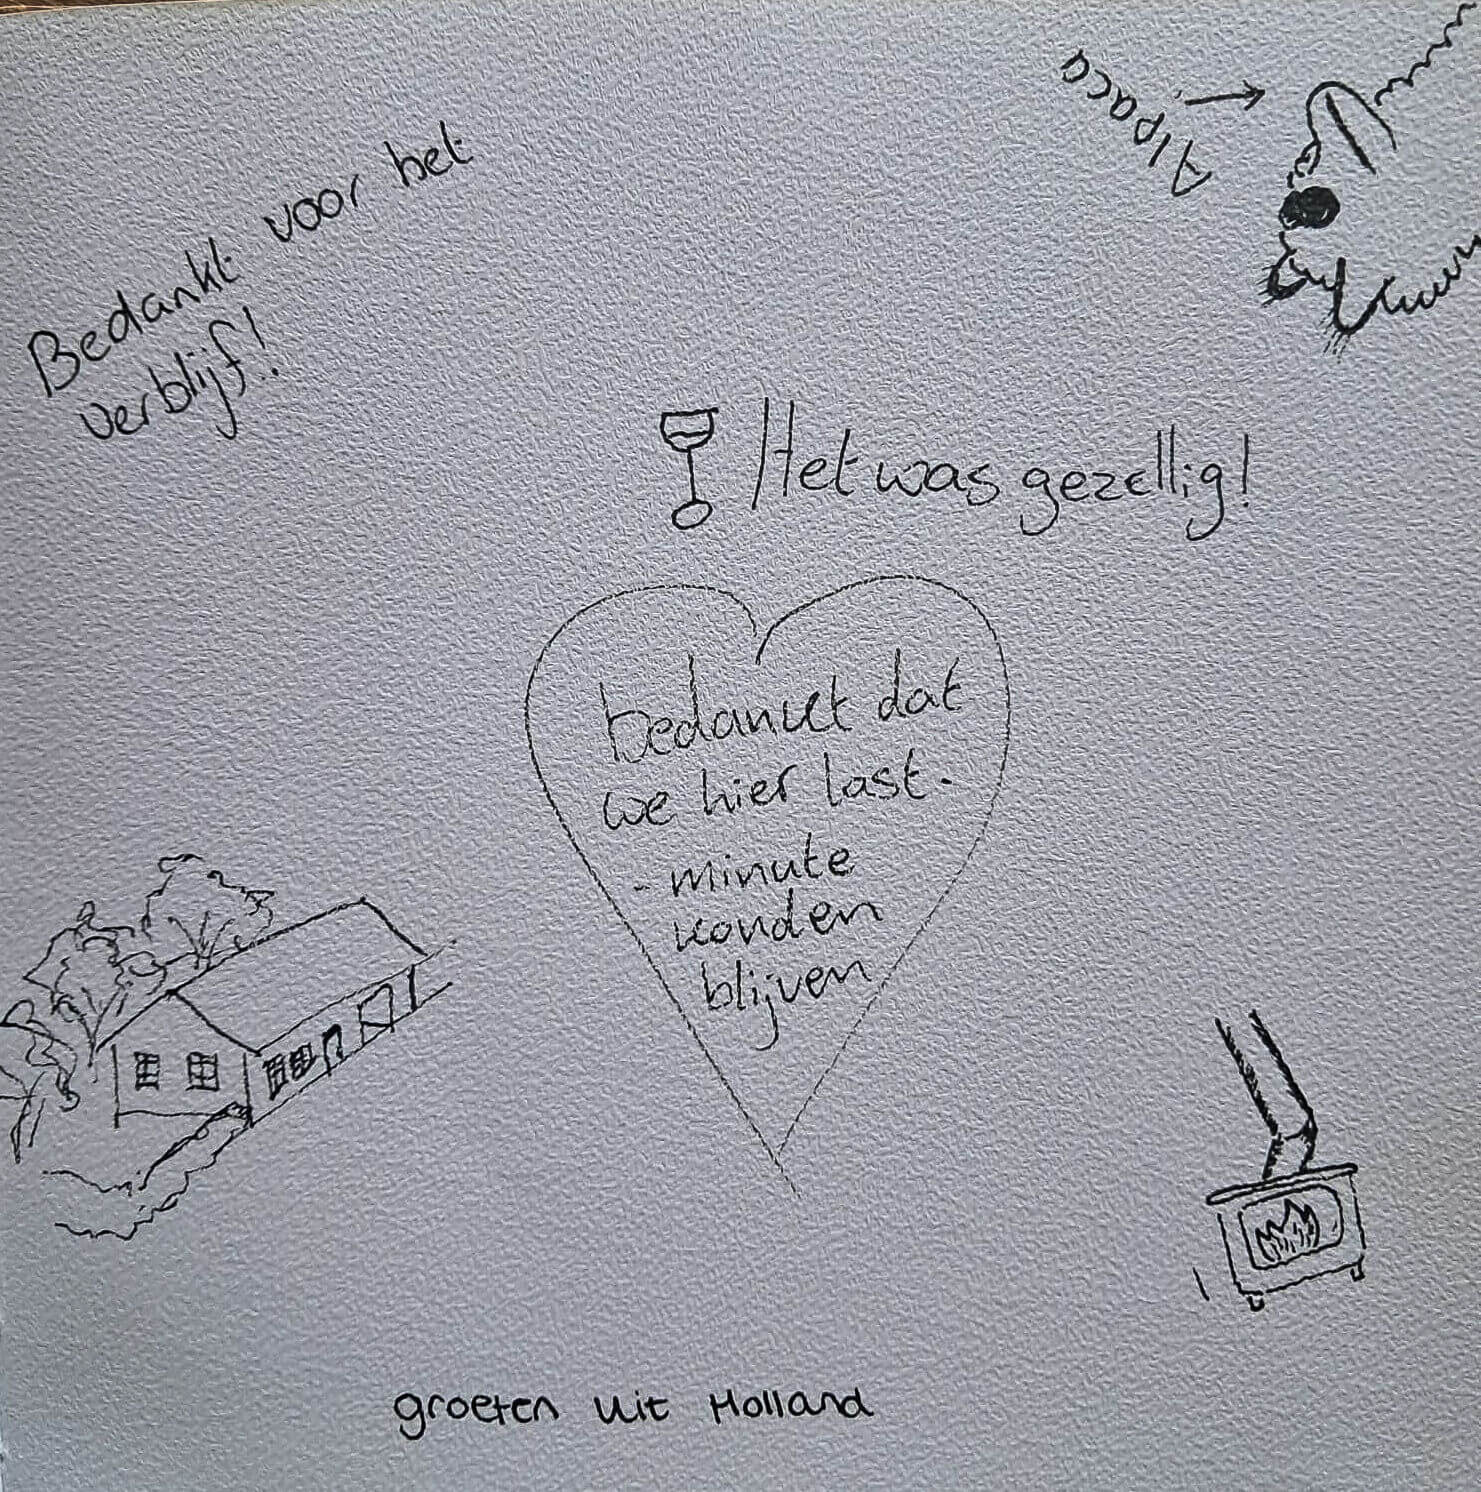 Alpaca
Bedankt voor het
verblijf!
Het was gezellig!
bedankt dat
we hier last-
-minute
konden
blijven
groeten uit Holland